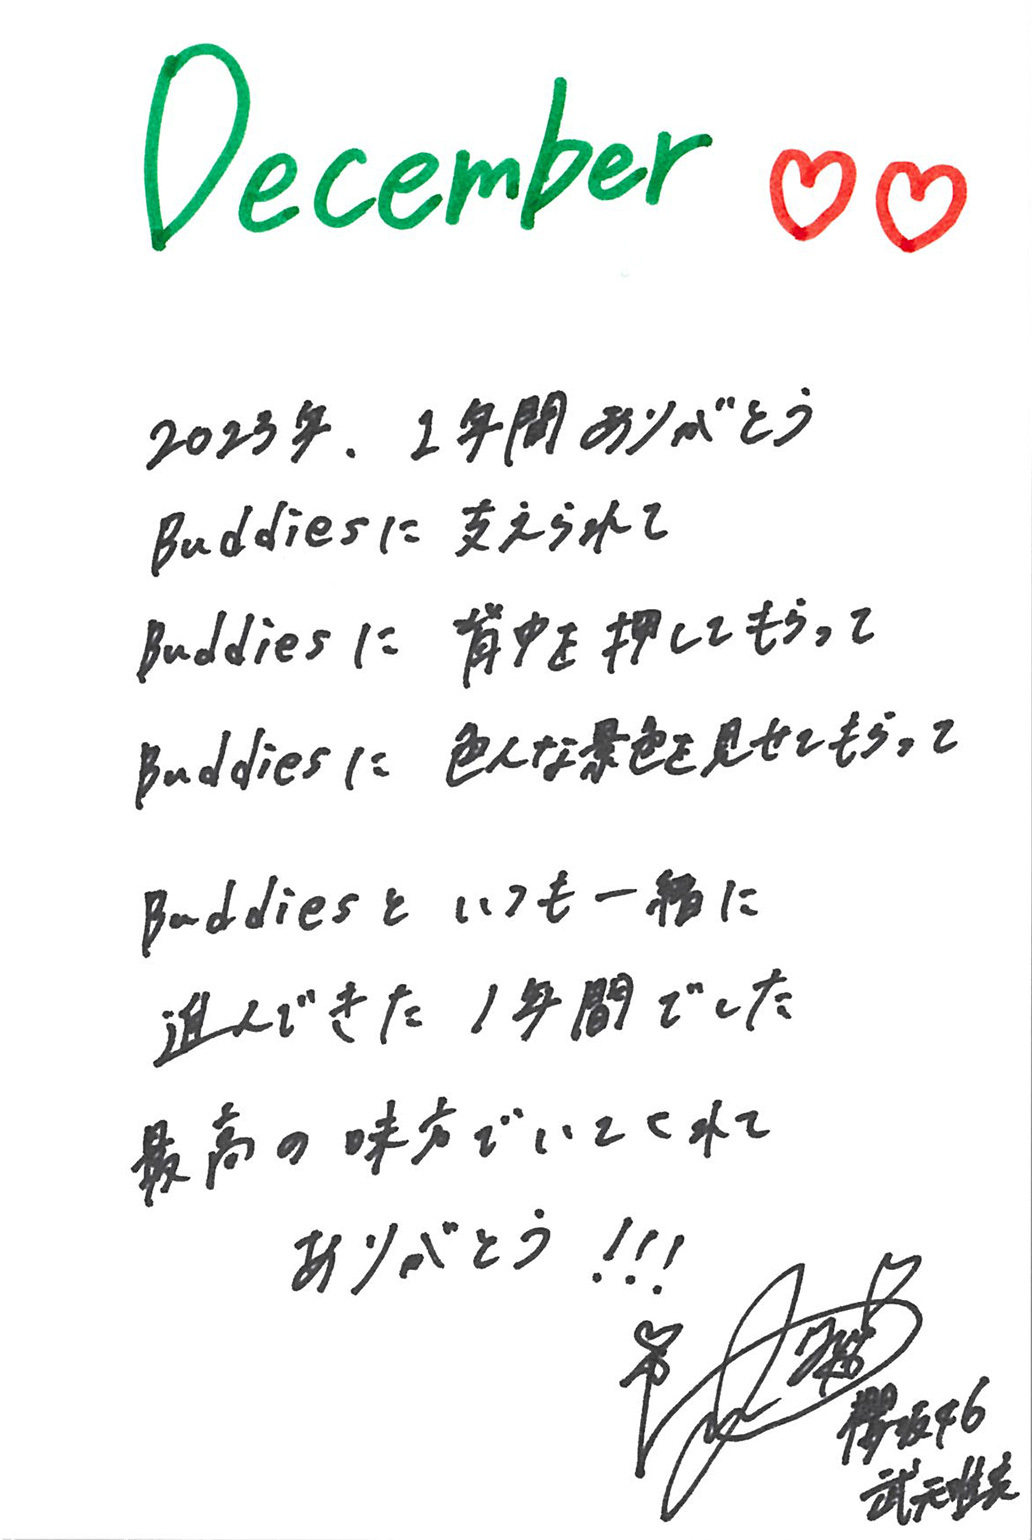 December
2023年、1年間ありがとう
Buddiesに 支えられて
Buddiesに 背中を押してもらって
Buddiesに 色んな景色を見せてもらって
Buddiesと いつも一緒に
進んできた 1年間でした
最高の味方でいてくれて
ありがとう!!!
櫻坂46
武元唯衣